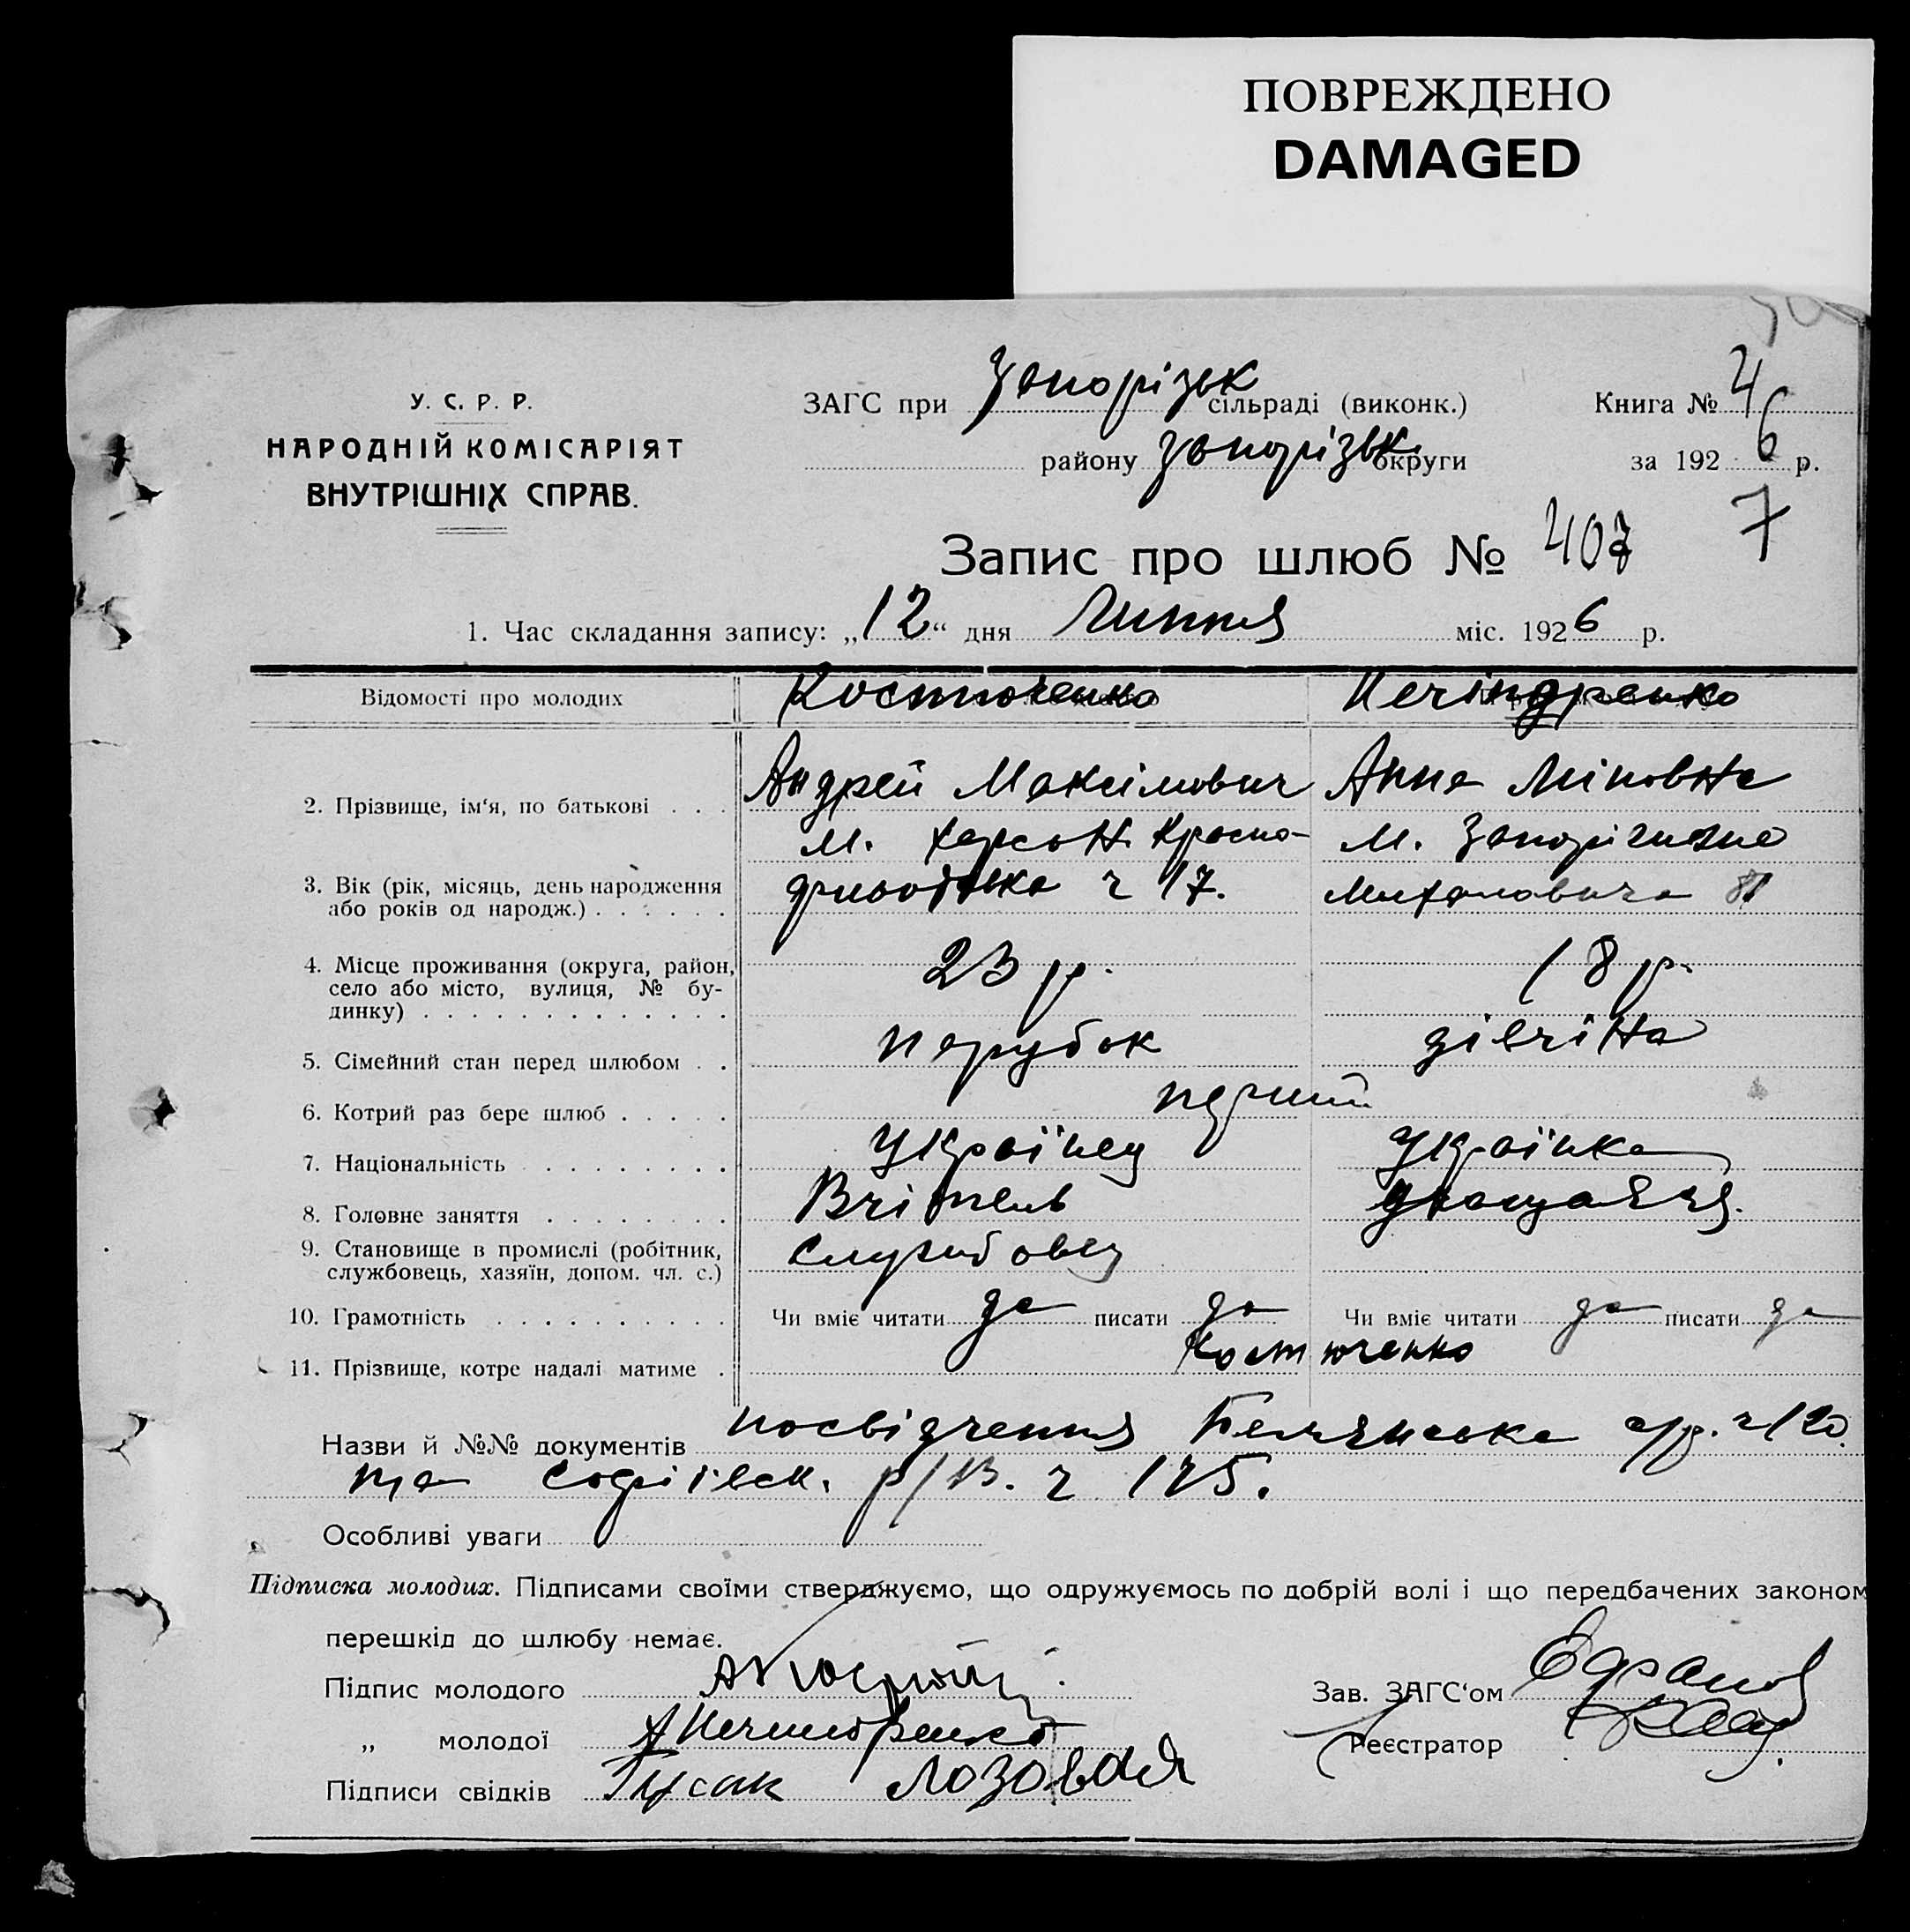 ПОВРЕЖДЕНО
DAMAGED
У. С. Р. Р.
НАРОДНІЙ КОМІСАРІЯТ
ВНУТРІШНІХ СПРАВ.
ЗАГС при Запорізьк сільраді (виконк.)
району Запорізьк округи
Книга № 4
за 1926 р.
7
Запис про шлюб № 407
1. Час складання запису: „12“ дня Липня міс. 1926 р.
Відомості про молодих Костюченко Нечіпоренко
2. Прізвище, ім‘я, по батькові . . . Андрей Максімович Анна Міновна
м. Херсон. м. Запоріжжя
3. Вік (рік, місяць, день народження
або років од народж.) . . . . . . ч 17.
4. Місце проживання (округа, район,
село або місто, вулиця, № бу-
динку) . . . . . . . . . . . . . 23 р. 18 р.
5. Сімейний стан перед шлюбом . . парубок дівчіна
6. Котрий раз бере шлюб . . . . . перший
7. Національність . . . . . . . . . Українец Українка
8. Головне заняття . . . . . . . . Вчітель
9. Становище в промислі (робітник,
службовець, хазяїн, допом. чл. с.) Службовец
10. Грамотність . . . . . . . . . . Чи вміє читати да писати да Чи вміє читати да писати да
11. Прізвище, котре надалі матиме . Костюченко
Назви й №№ документів посвідчення с/р. ч 120
та Софіївск. р/в. ч 175.
Особливі уваги
Підписка молодих. Підписами своїми стверджуємо, що одружуємось по добрій волі і що передбачених законом
перешкід до шлюбу немає.
Підпис молодого
Зав. ЗАГС‘ом
„ молодої АНечипоренко
Реєстратор
Підписи свідків Гусак Лозовая